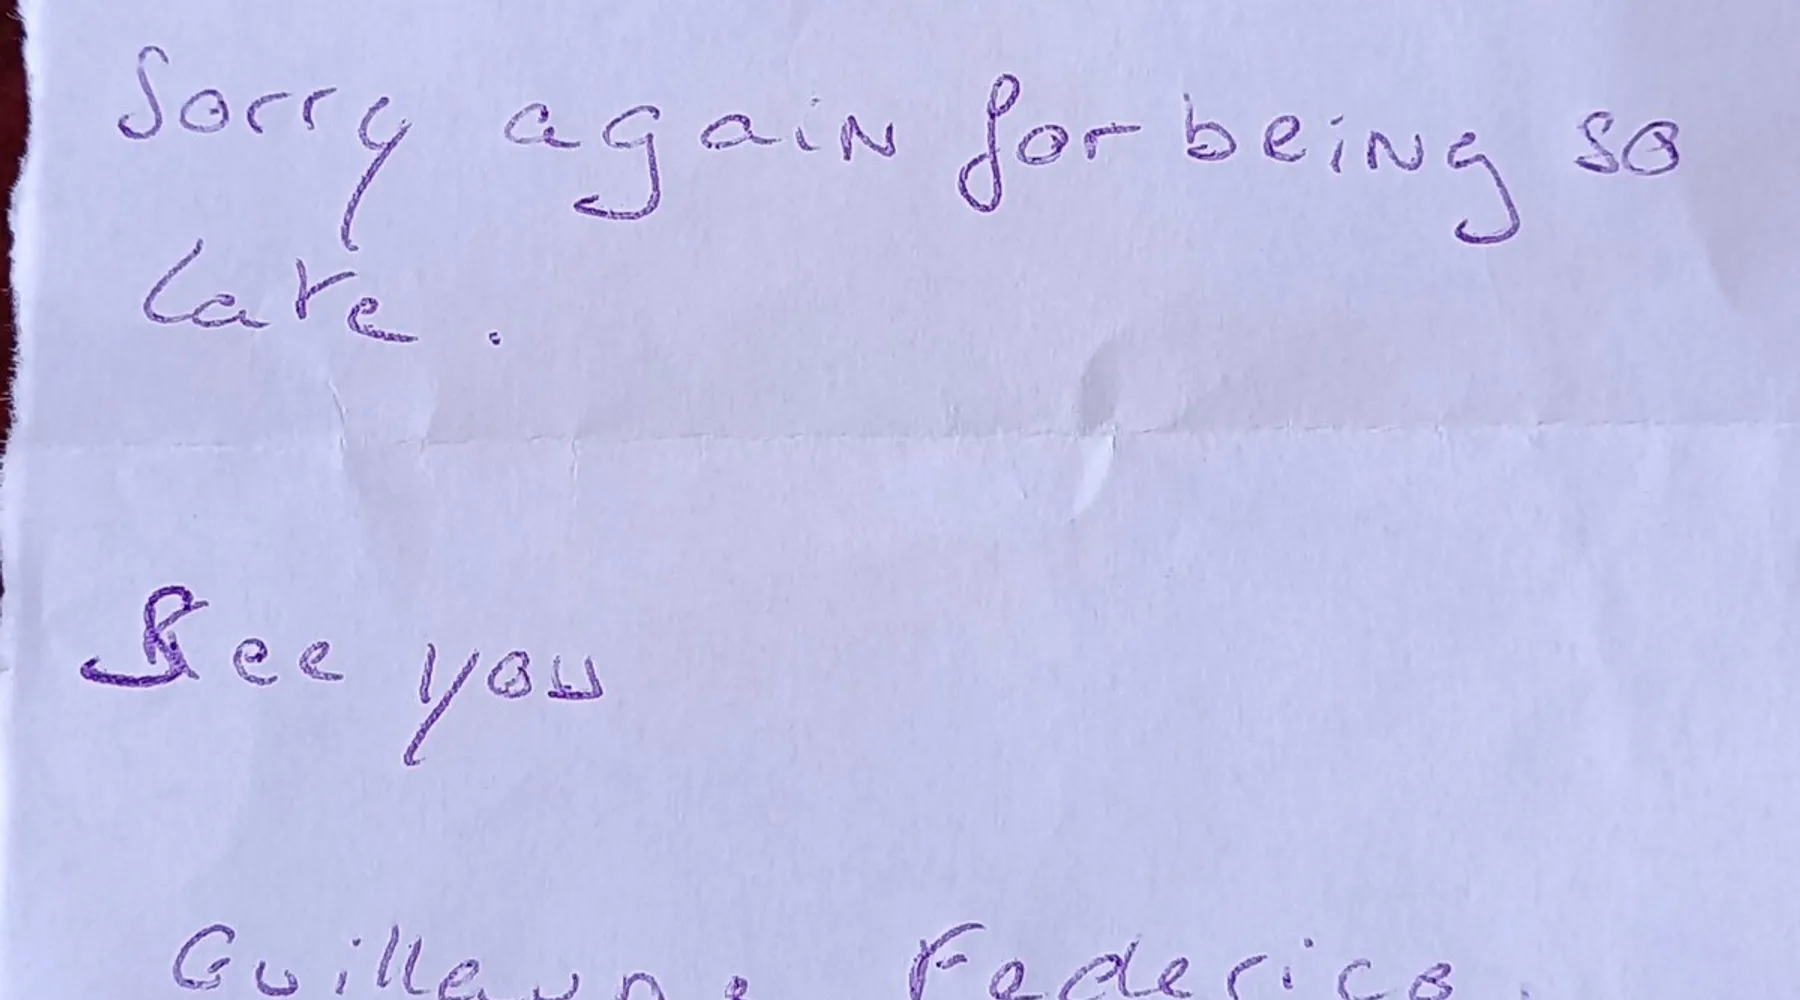 Sorry again for being so
late.
See you
Guillaume Federico.